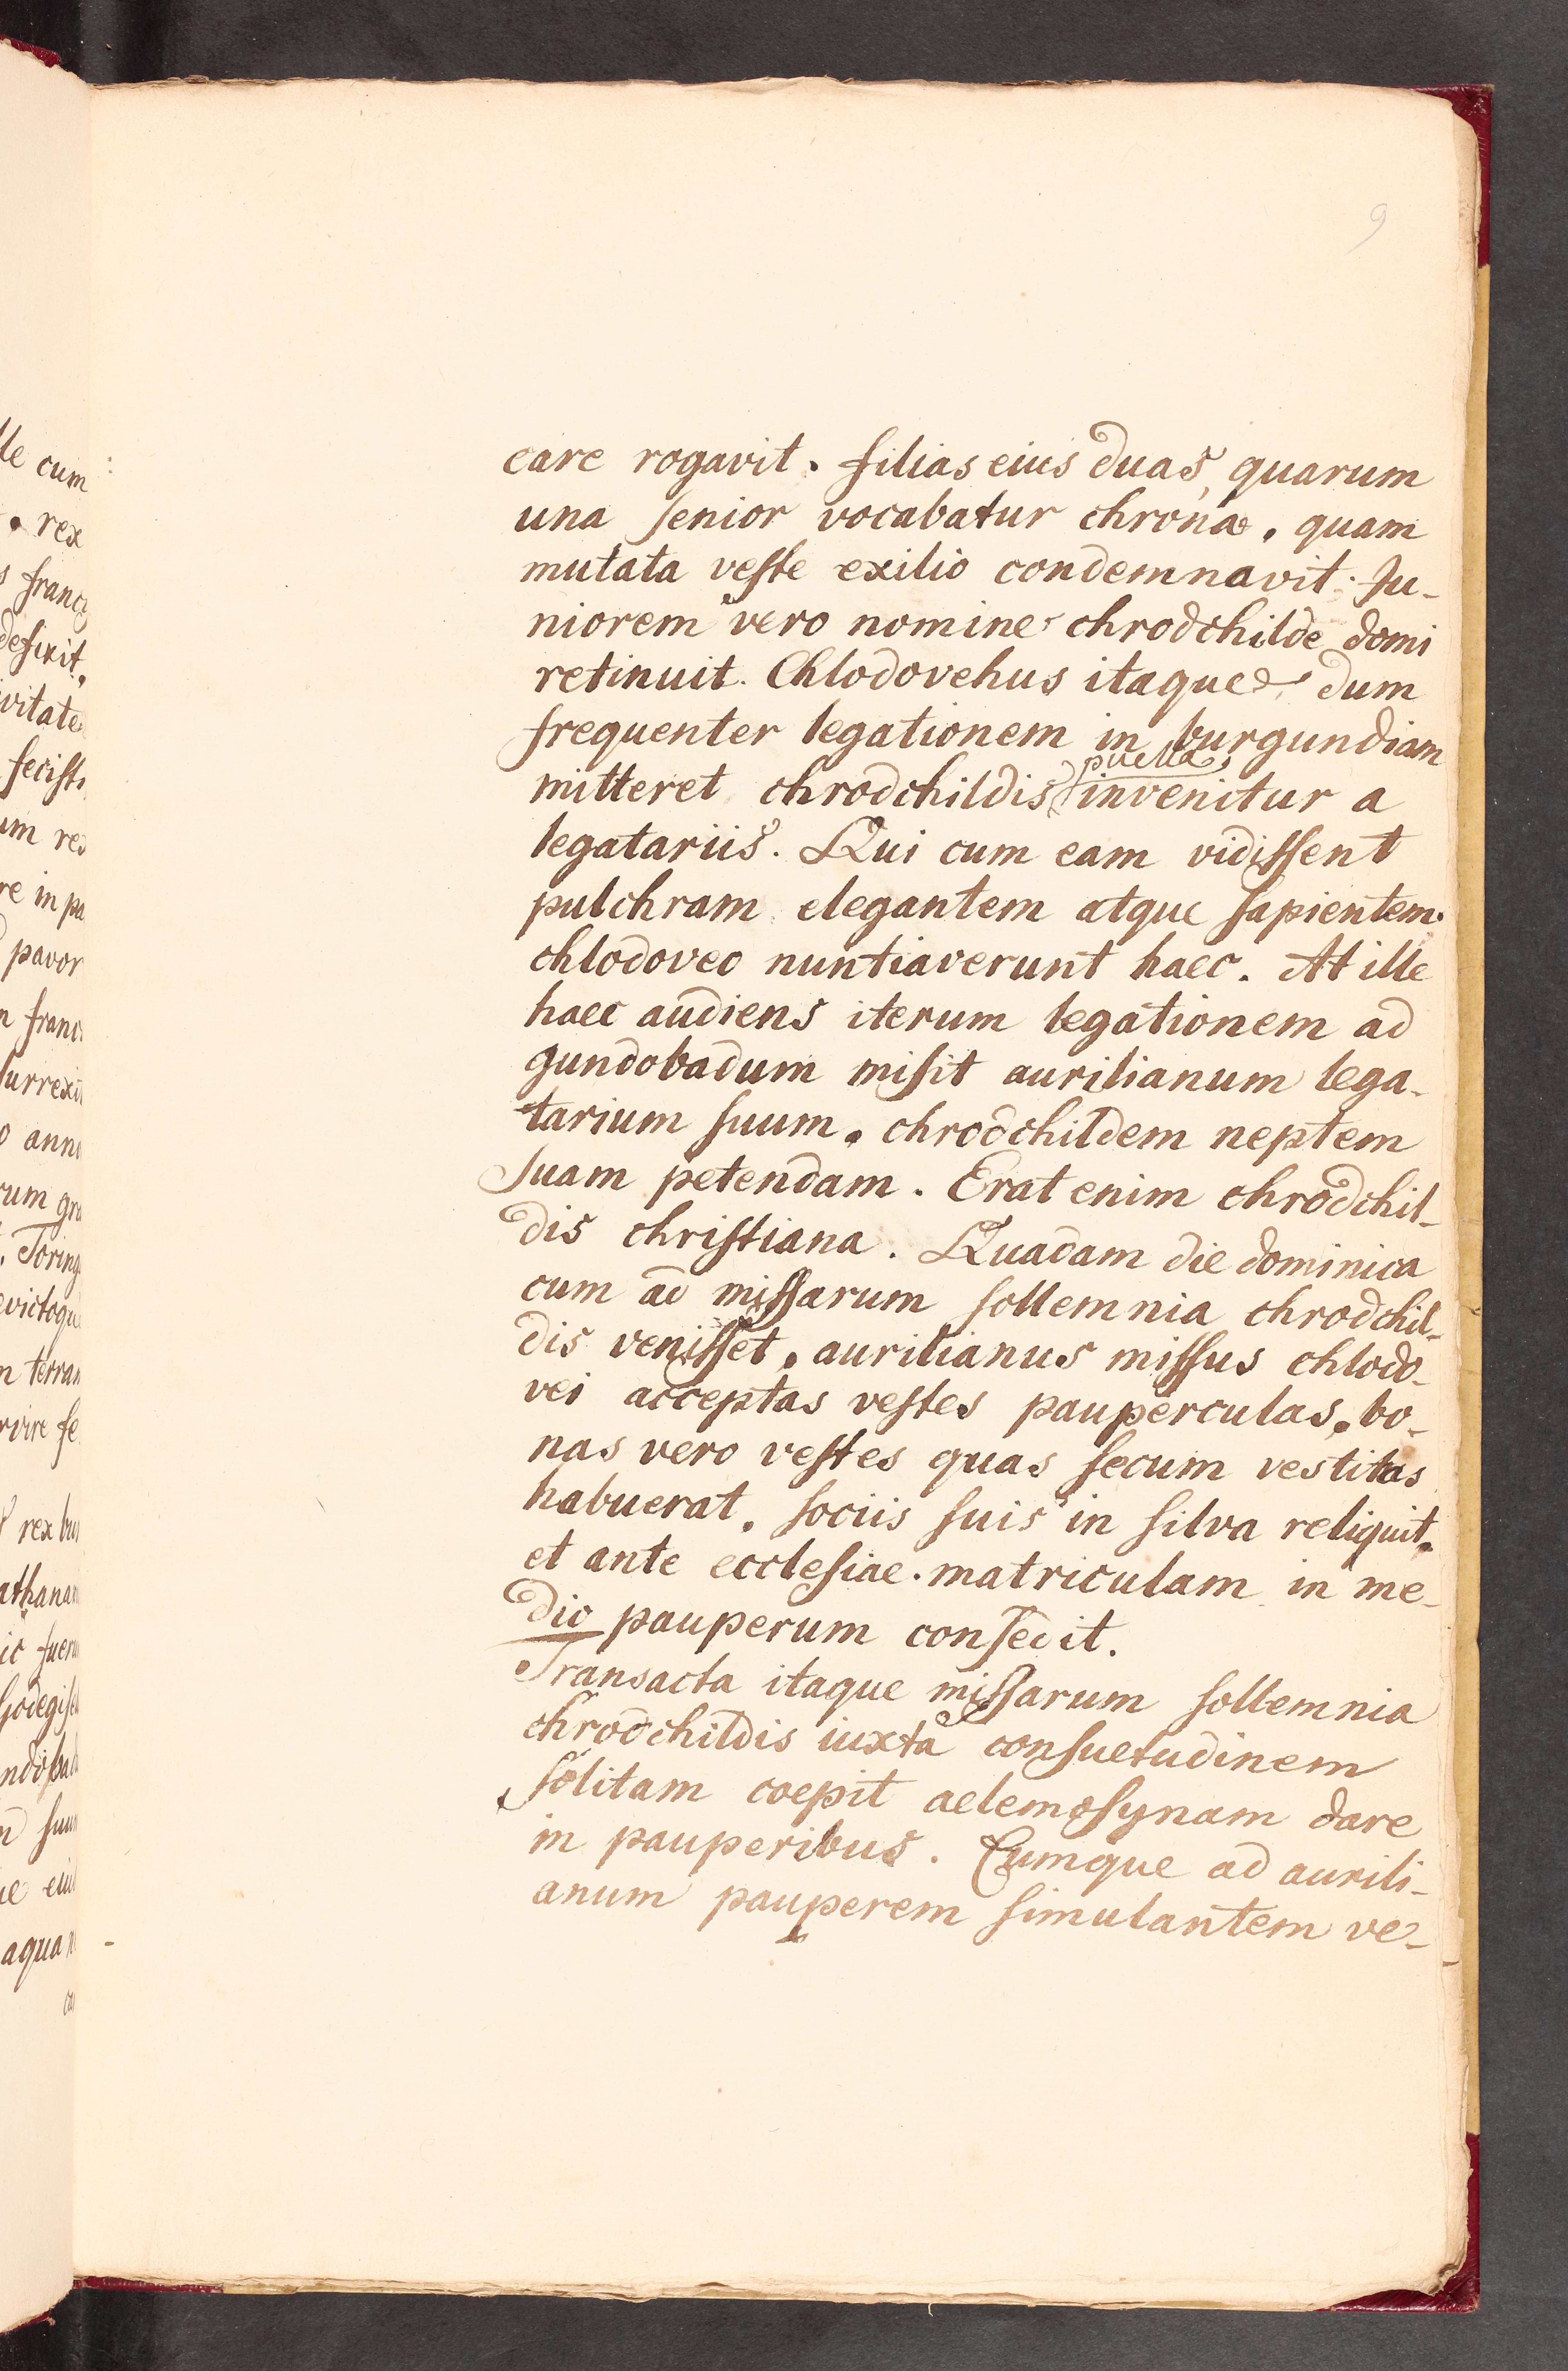 9
care rogavit. filias eius duas, quarum
una senior vocabatur chrona. quam
mutata veste exilio condemnavit. Ju-
niorem vero nomine chrodchilde domi
retinuit. Chlodovehus itaque dum
frequenter legationem in burgundiam
puella
mitteret chrodchildis invenitur a
legatariis. Qui cum eam vidissent
pulchram elegantem atque sapientem.
chlodoveo nuntiaverunt haec. At ille
haec audiens iterum legationem ad
gundobadum misit aurilianum lega-
tarium suum. chrodchildem neptem
suam petendam. Erat enim chrodchil-
dis christiana. Quadam die dominica
cum ad missarum sollemnia chrodchil-
dis venisset. aurilianus missus chlodo-
vei acceptas vestes pauperculas. bo-
nas vero vestes quas secum vestitas
habuerat. sociis suis in silva reliquit.
et ante ecclesiae. matriculam in me-
dio pauperum consedit.
Transacta itaque missarum sollemnia
chrodchildis iuxta consuetudinem
solitam coepit aelemosynam dare
in pauperibus. Cumque ad aurili-
anum pauperem simulantem ve-